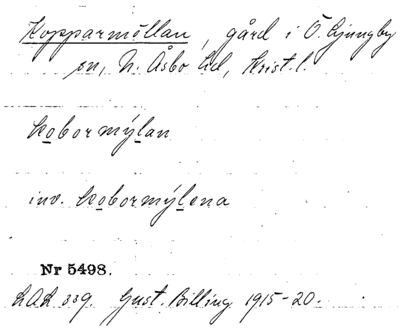 Kopparmöllan, gård i Ö. Ljungby
sn, N. Åsbo hd, Krist. l.
kobormýlan
inv. kobormýlena
Nr 5498.
LAL 339. Gust. Billing 1915-20.